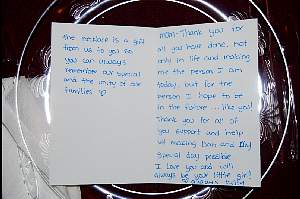 the necklace is a gift
from us to you so
you can always
remember our special
and the unity of our
families
mom-Thank you for
all you have done. not
only in life and making
me the person I am
today, but for the
person I hope to be
in the future... like you!
Thank you for all of
you support and help
us making Dan and My
special day possible
I love you and will
always be your little girl